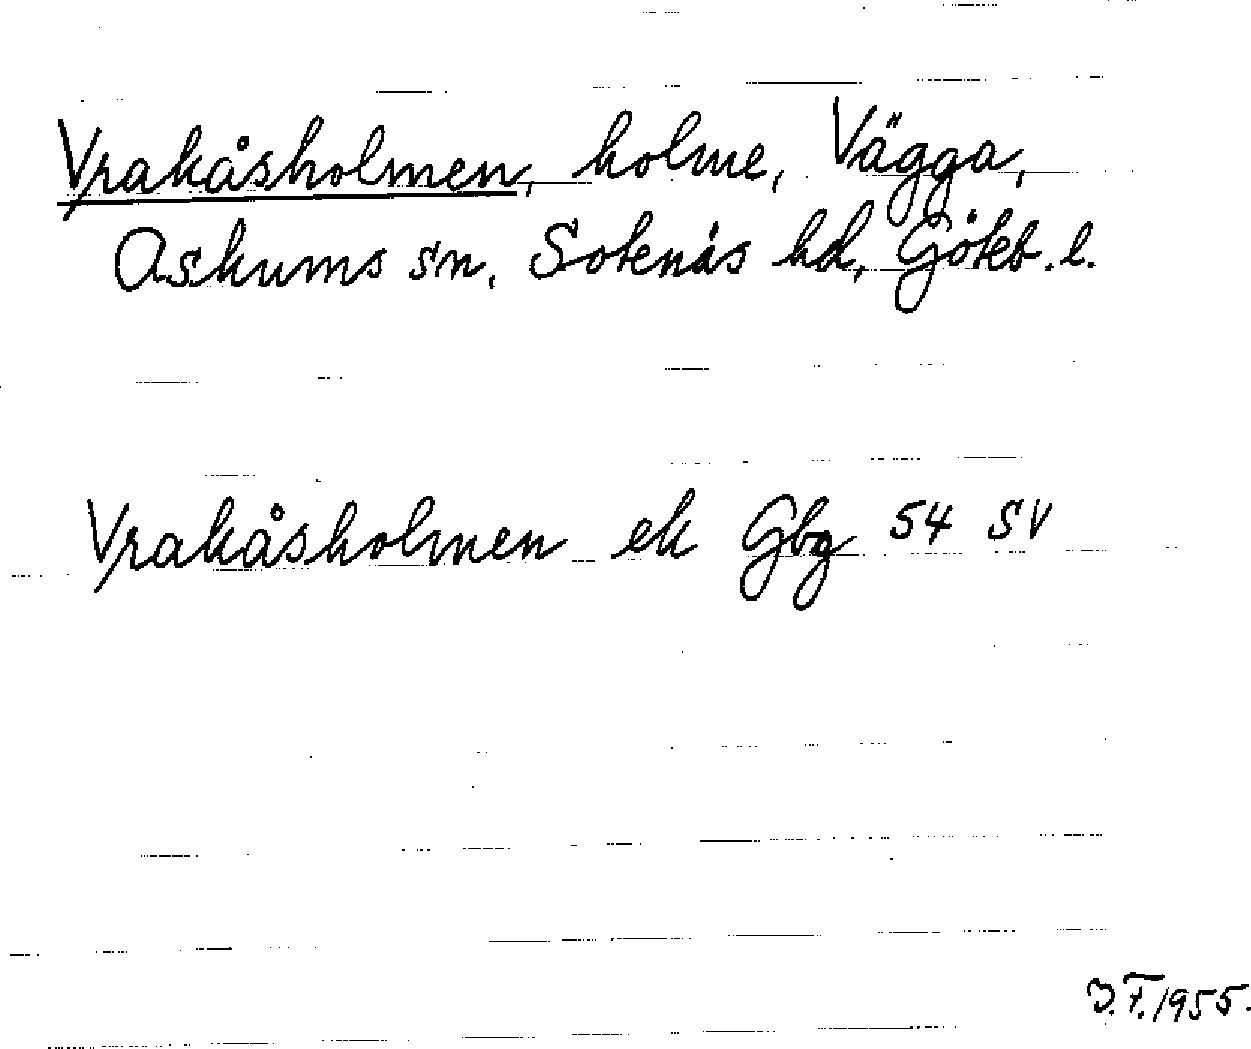 Vrakåsholmen, holme, Vägga,
Askums sn, Sotenäs hd, Göteb. l.
Vrakåsholmen ek Gbg 54 SV
J.F. 1955.